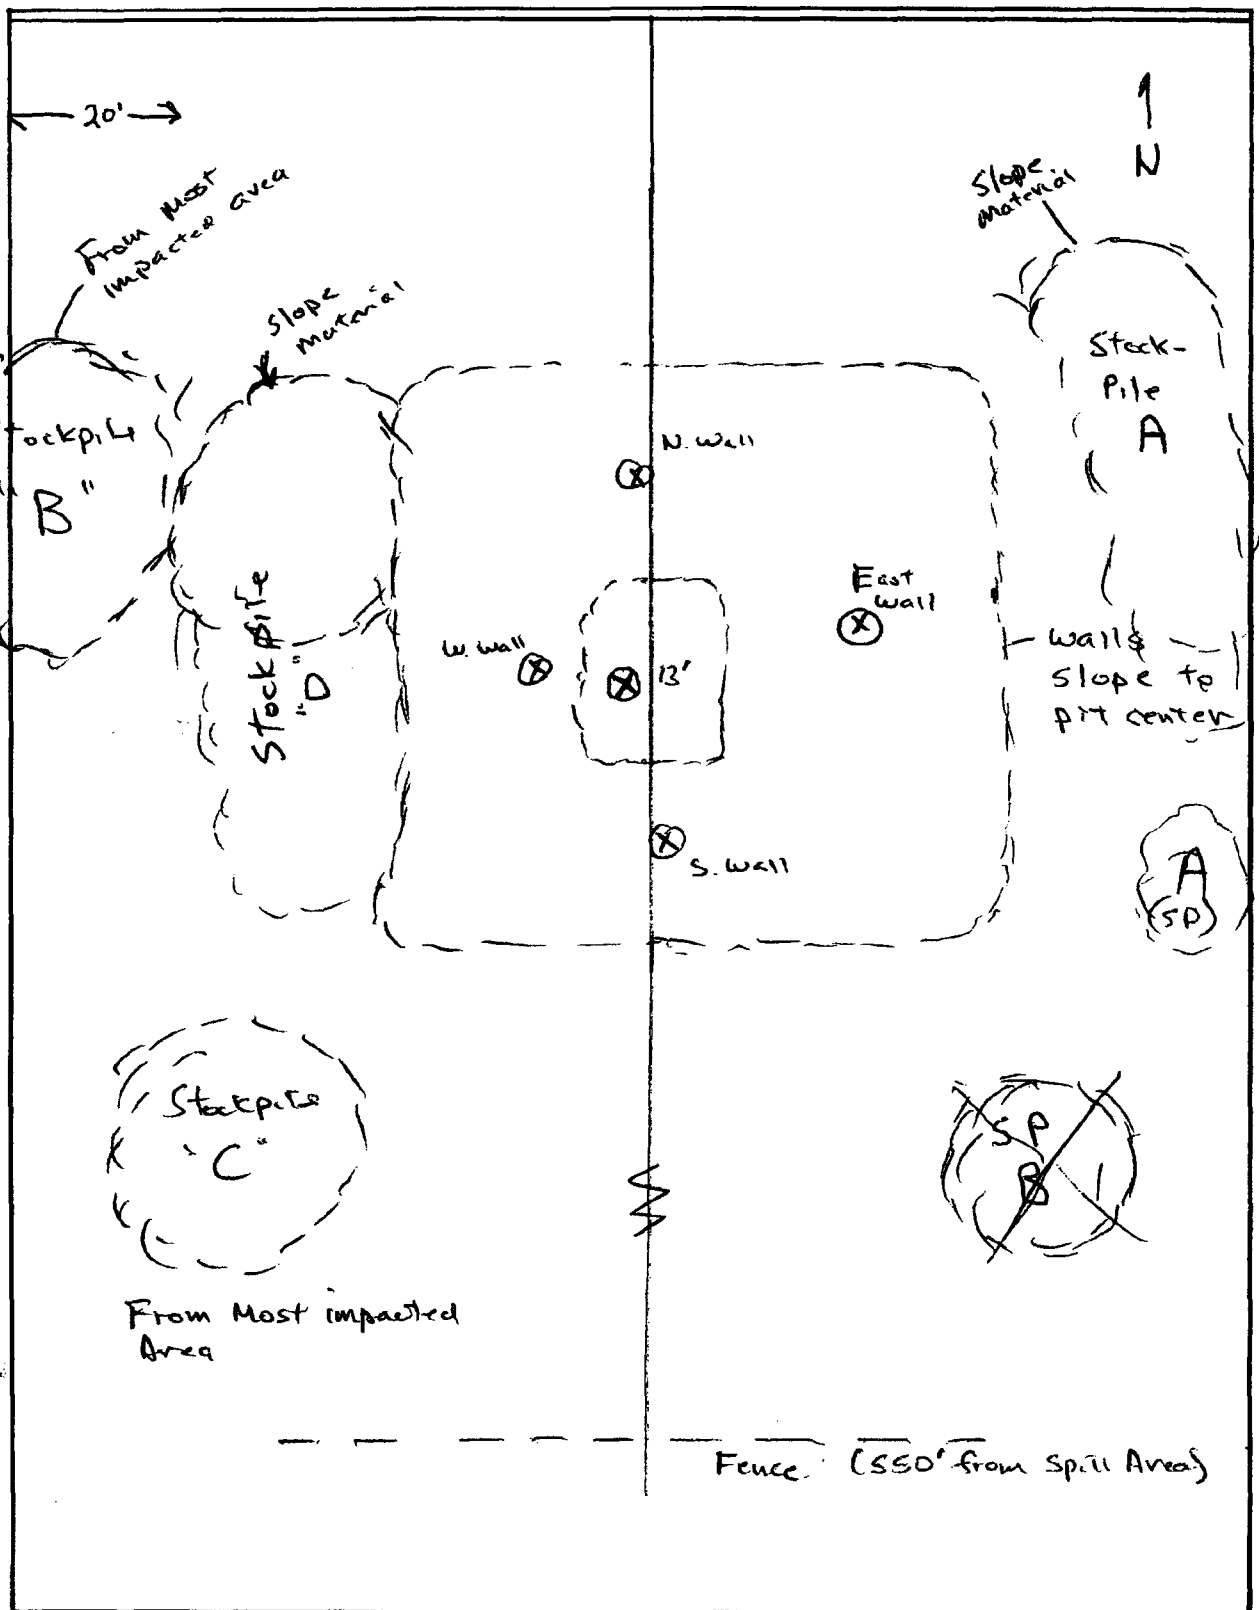 20'
N
From Most
impacted area
Slope
Material
Slope
material
Stock-
Pile
A
tockpile
B"
N. Wall
East
Wall
W. Wall
13'
Stockpile
"D"
Walls
slope to
pit center
S. Wall
A
(SP)
Stockpile
"C"
SP
B
From Most impacted
Area
Fence (550' from Spill Area)